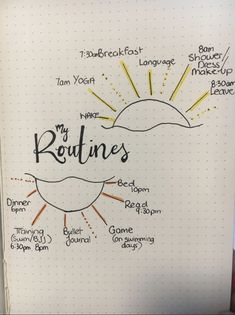 7:30am Breakfast
Language
8am
Shower
Dress/
Make-up
7am YOGA
8:30am
Leave
WAKE
My
Routines
Bed
10pm
Read
9:30pm
Game
(on swimming
days)
Bullet
Journal
Training
(Swim/BJJ)
6:30pm 8pm
Dinner
6pm